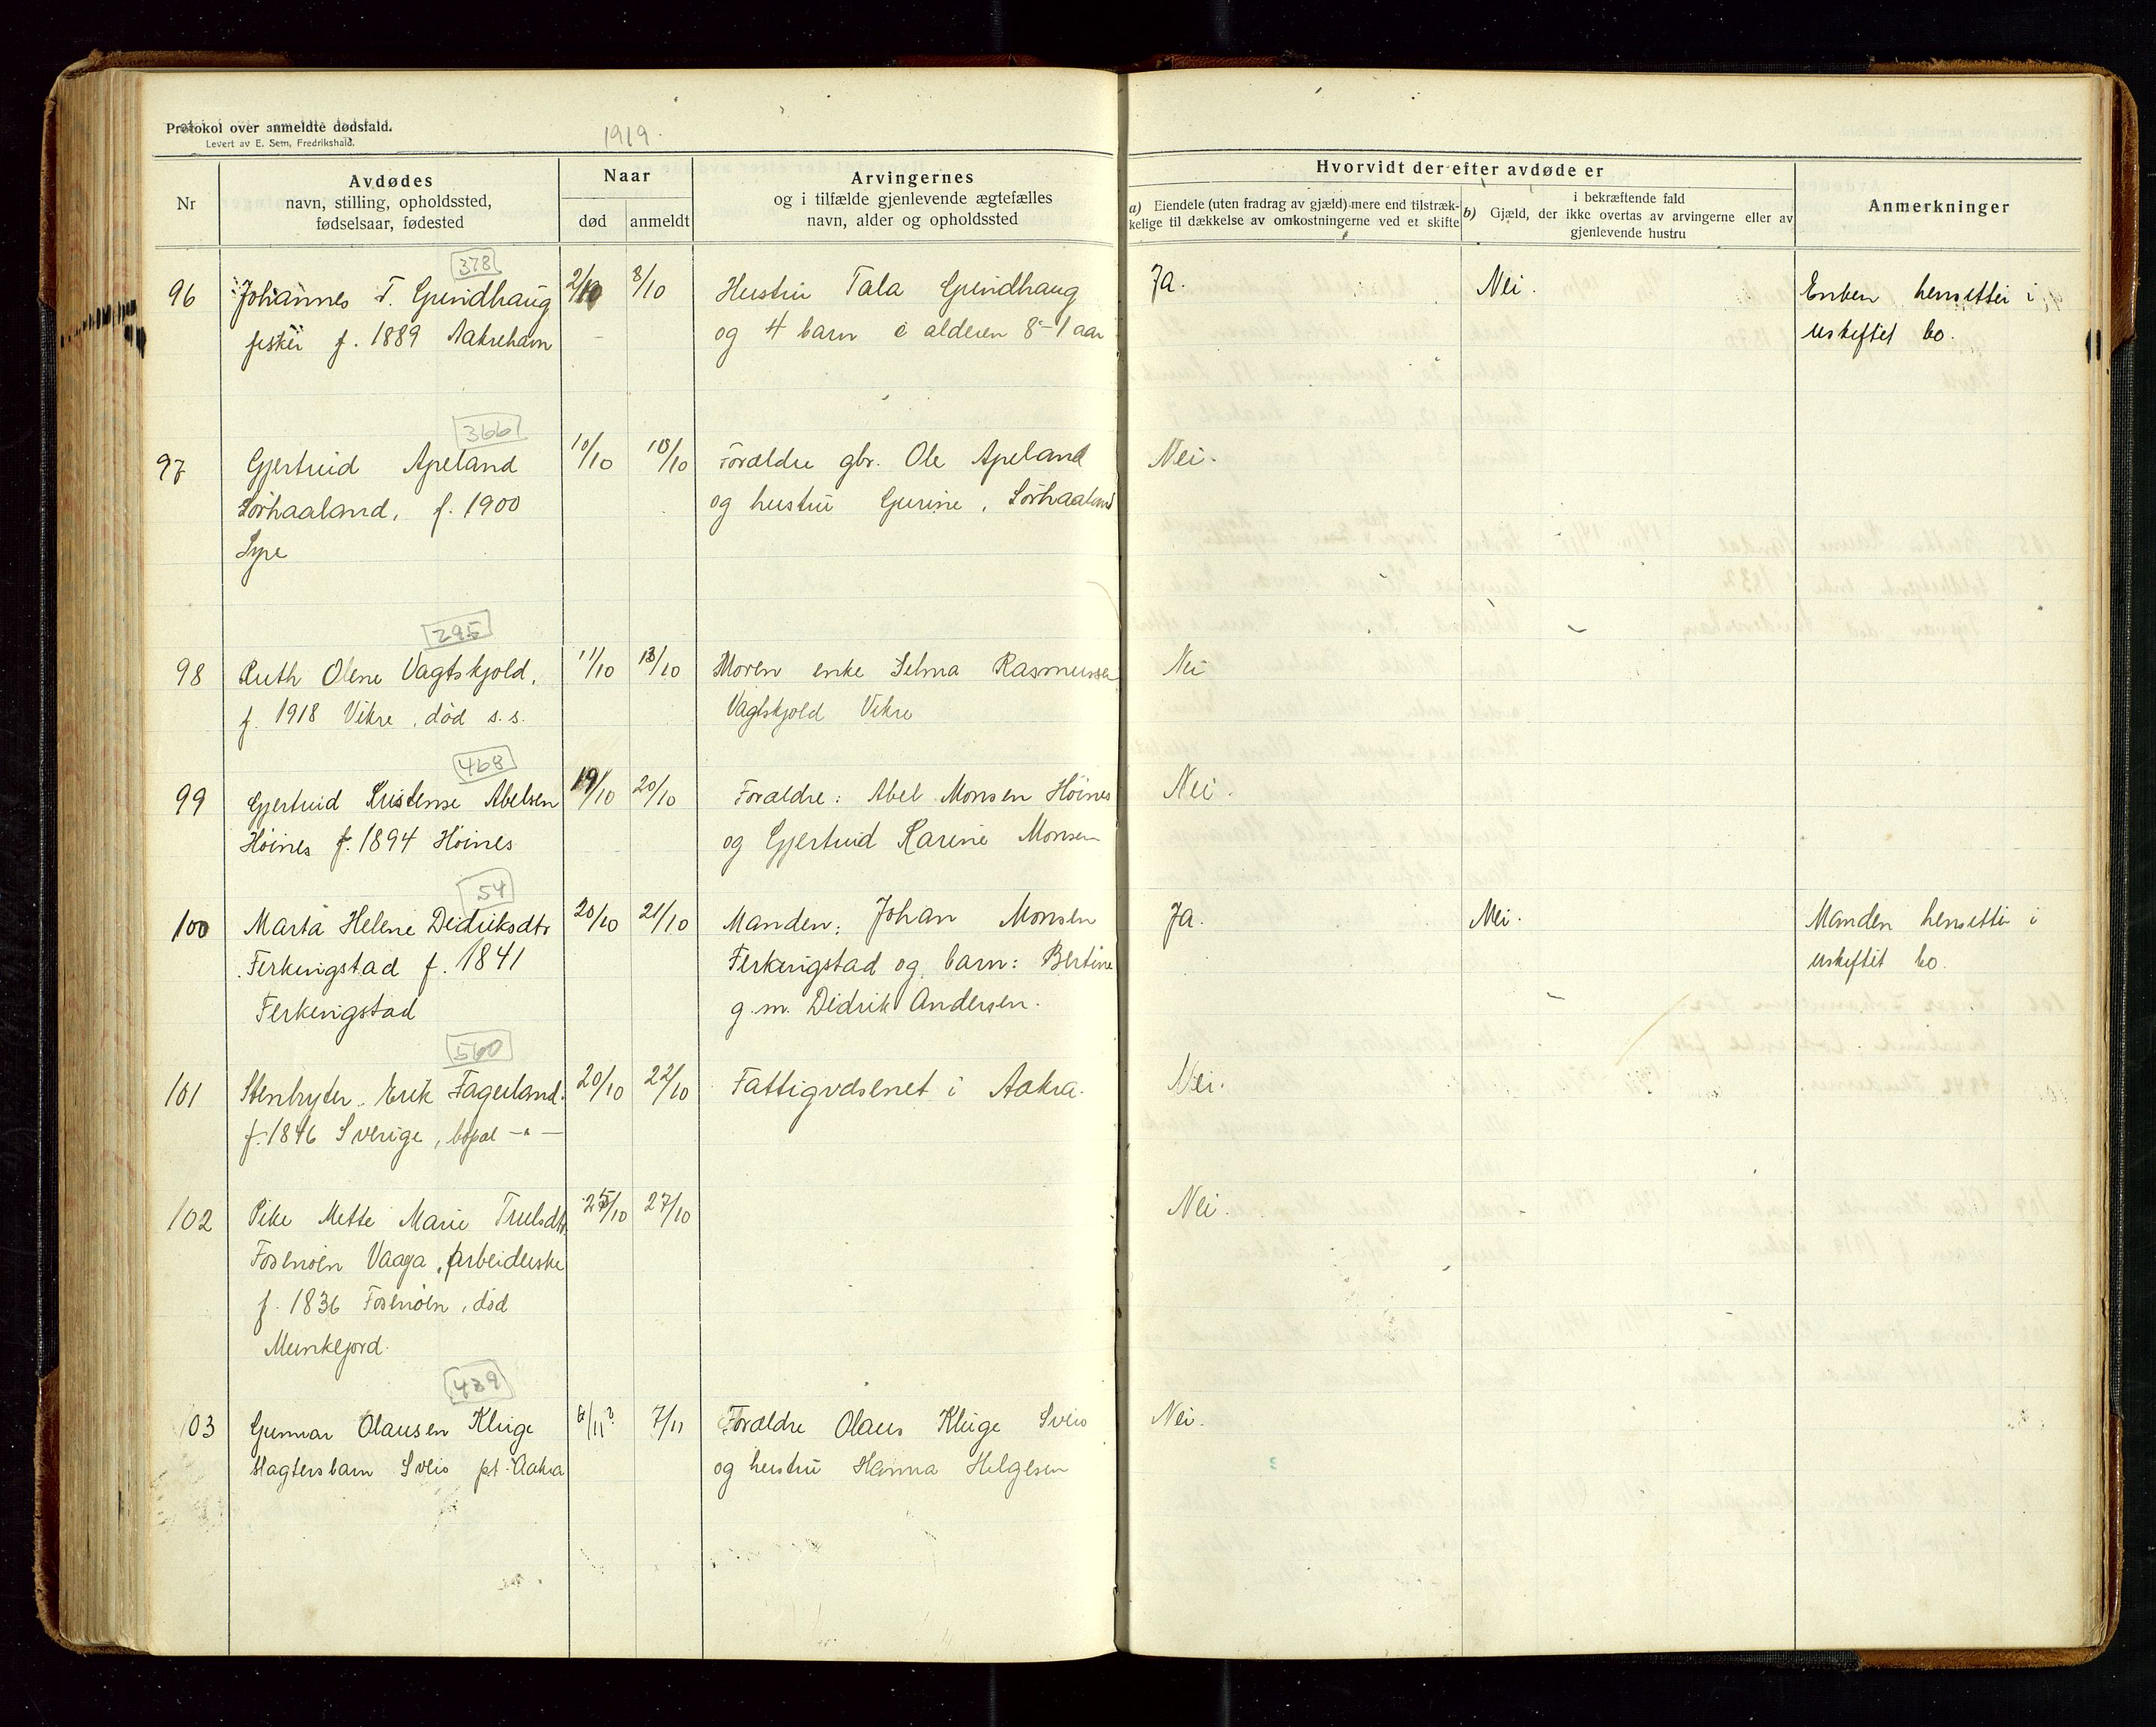 Protokol over anmeldte dødsfald.
Levert av E. Sem, Fredrikshald.
1919.
Nr
Avdødes
navn, stilling, opholdssted,
fødselsaar, fødested
Naar
død
anmeldt
Arvingernes
og i tilfælde gjenlevende ægtefælles
navn, alder og opholdssted
Hvorvidt der efter avdøde er
a) Eiendele (uten fradrag av gjæld) mere end tilstræk-
kelige til dækkelse av omkostningerne ved et skifte
i bekræftende fald
b) Gjæld, der ikke overtas av arvingerne eller av
gjenlevende hustru
Anmerkninger
378
96 Johannes T. Grindhaug 2/10 8/10 Hustru Tala Grindhaug Ja. Nei. Enken hensitter i
fisker f. 1889 Aakrehavn og 4 barn i alderen 8-1 aar uskiftet bo.
366
97 Gjertruid Apeland 10/10 13/10 Forældre gbr. Ole Apeland Nei.
Sørhaaland, f. 1900 og hustru Gurine, Sørhaaland
Syre
295
98 Ruth Olene Vagtskjold, 11/10 13/10 Moren enke Selma Rasmussen Nei
f. 1918 Vikre, død s.s. Vagtskjold Vikre
468
99 Gjertruid Kristense Abelsen 19/10 20/10 Forældre: Abel Monsen Høines Nei.
Høines f. 1894 Høines og Gjertruid Karine Monsen
54
100 Marta Helene Didriksdtr 20/10 21/10 Manden: Johan Monsen Ja. Nei. Manden hensitter i
Ferkingstad f. 1841 Ferkingstad og barn: Bertine uskiftet bo.
Ferkingstad g.m. Didrik Andersen.
560
101 Stenbryter Erik Fagerland. 20/10 22/10 Fattigvæsenet i Aakra. Nei.
f. 1846 Sverige, bopæl -"-
102 Pike Mette Marie Trulsdtr. 25/10 27/10 Nei.
Fosenøen Vaaga, arbeiderske
f. 1836 Fosenøen, død
Munkejord.
439
103 Gunnar Olausen Kluge 6/11? 7/11 Forældre Olaus Kluge Sveio Nei.
slagtersbarn Sveio pt. Aakra og hustru Hanna Helgesen